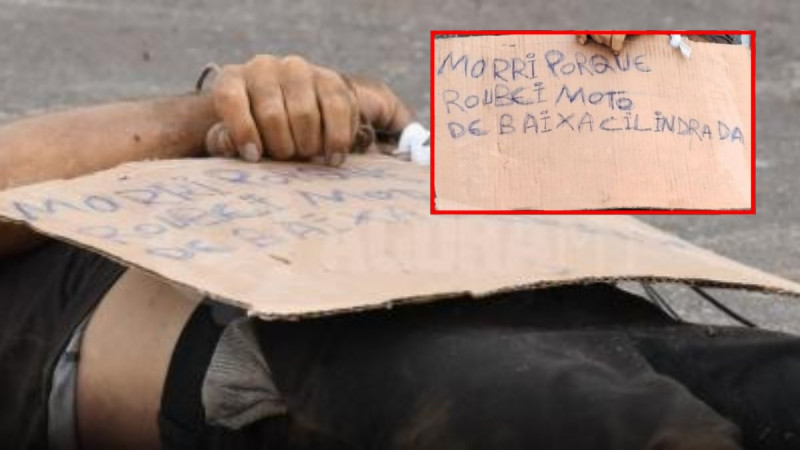 MORRI PORQUE
ROUBEI MOTO
DE BAIXA CILINDRADA
MORRI PORQUE
ROUBEI MOTO
DE BAIXA